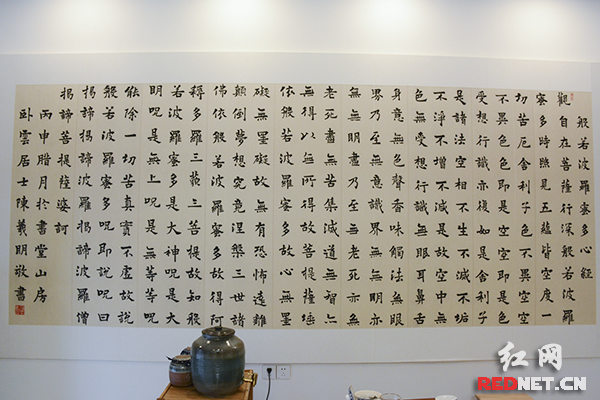 般若波羅蜜多心經
觀自在菩薩行深般若波羅
蜜多時照見五蘊皆空度一
切苦厄舍利子色不異空空
不異色色即是空空即是色
受想行識亦復如是舍利子
是諸法空相不生不滅不垢
不淨不增不減是故空中無
色無受想行識無眼耳鼻舌
身意無色聲香味觸法無眼
界乃至無意識界無無明亦
無無明盡乃至無老死亦無
老死盡無苦集滅道無智亦
無得以無所得故菩提薩埵
依般若波羅蜜多故心無罣
礙無罣礙故無有恐怖遠離
顛倒夢想究竟涅槃三世諸
佛依般若波羅蜜多故得阿
耨多羅三藐三菩提故知般
若波羅蜜多是大神呪是大
明呪是無上呪是無等等呪
能除一切苦真實不虛故說
般若波羅蜜多呪即說呪曰
揭諦揭諦波羅揭諦波羅僧
揭諦菩提薩婆訶
丙申腊月於書堂山房
卧雲居士陳羲明敬書
红网
REDNET.CN